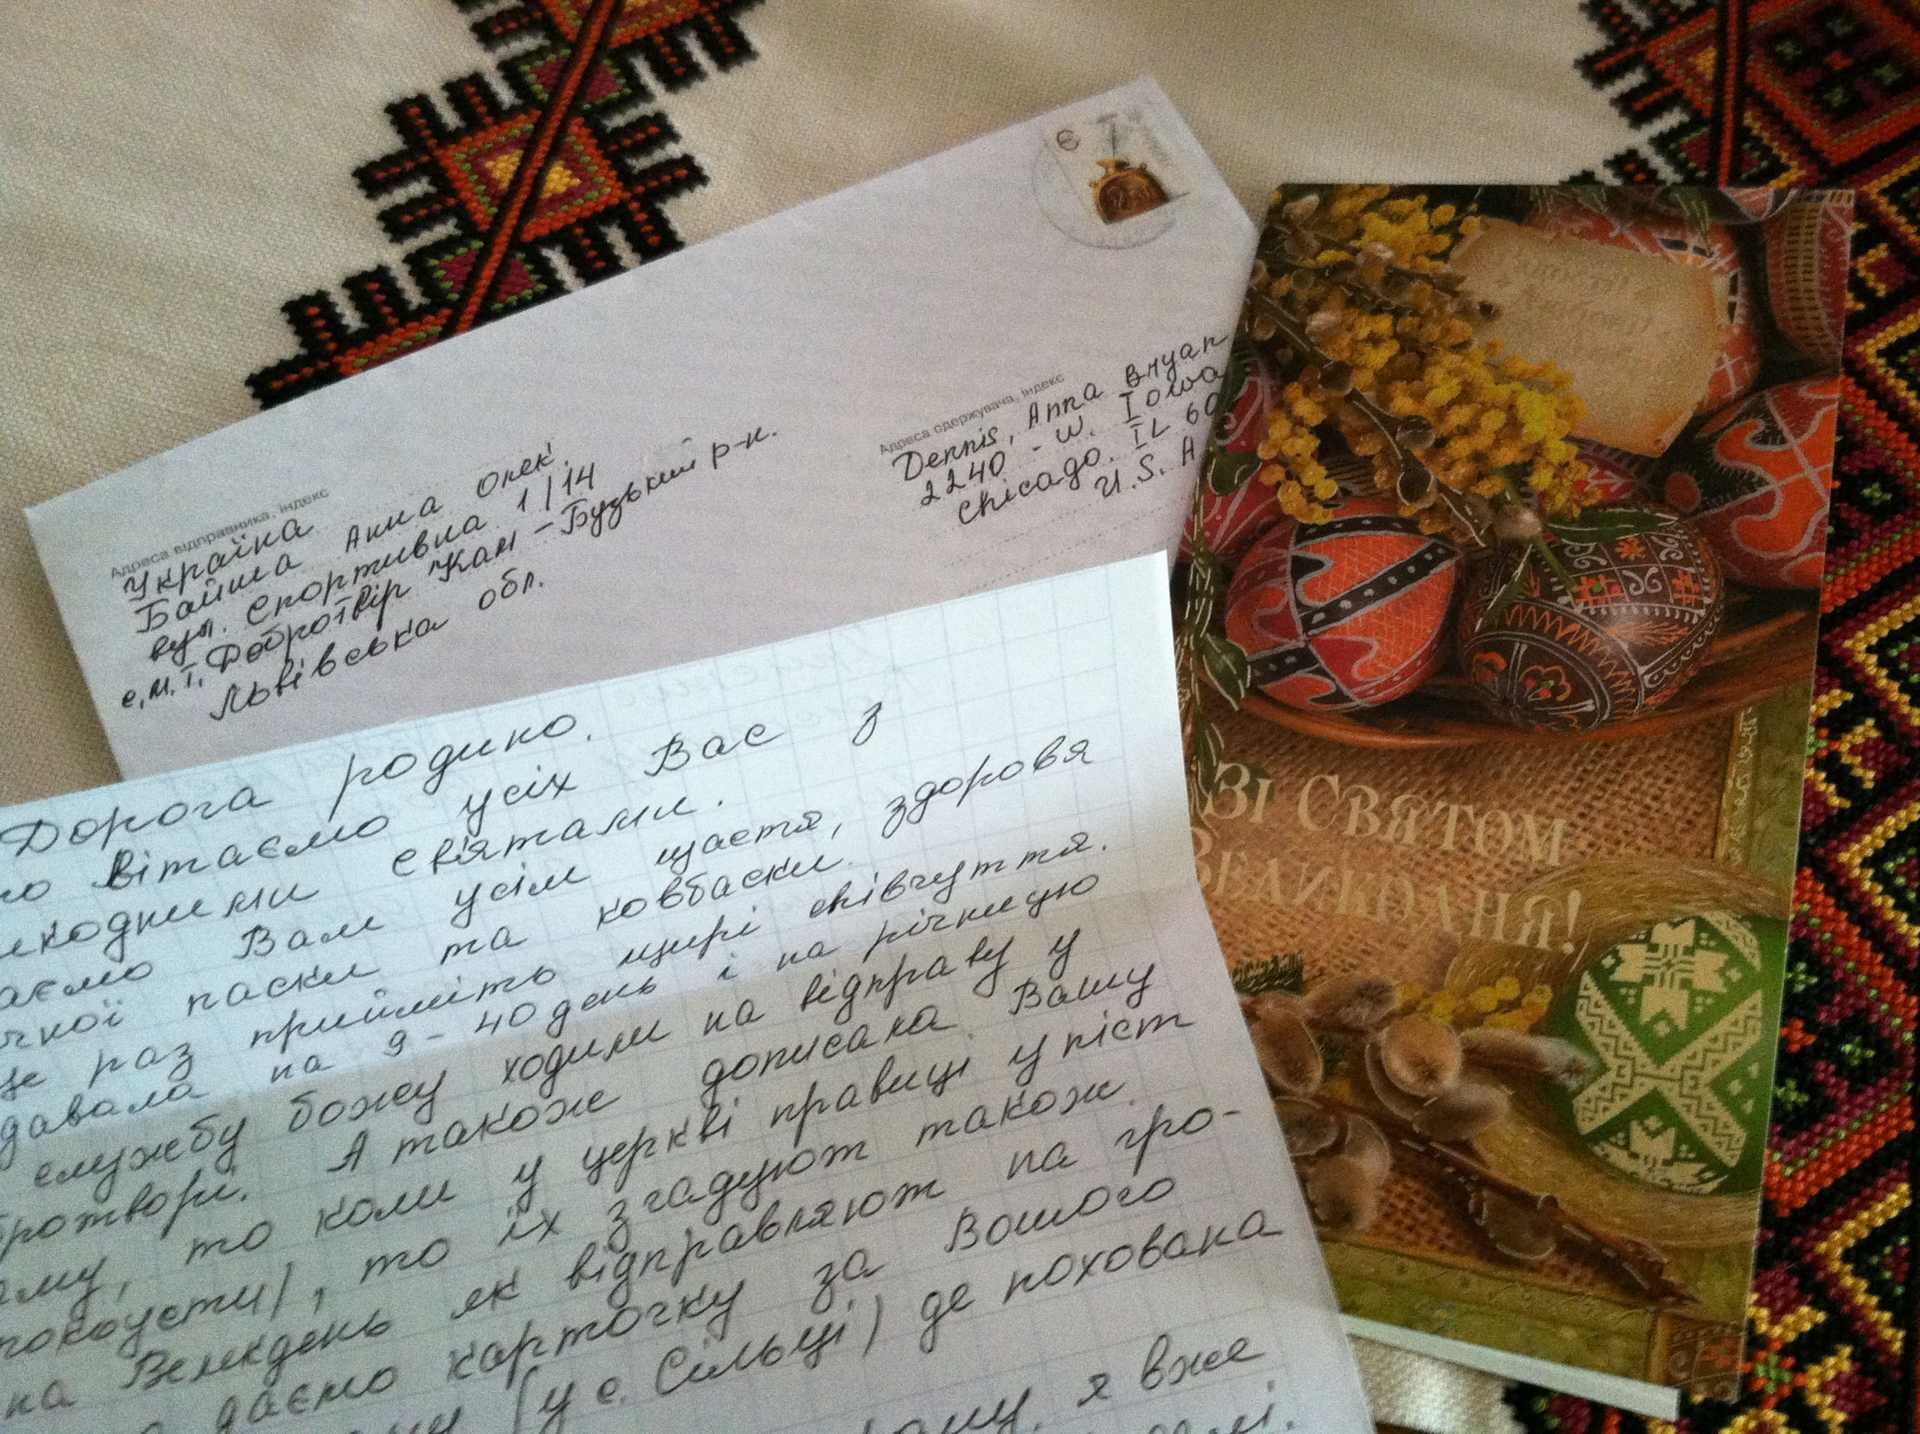 Є
Адреса відправника, індекс
Україна
Байша Анна Олек.
вул. Спортивна 1/14
с.м.т. Добротвір Кам-Бузький р-н.
Львівська обл.
Адреса одержувача, індекс
Dennis, Anna Bryan
2240 - W. Iowa
Chicago. IL 60
U.S.A
Дорога родино.
вітаємо усіх Вас з
святами.
Вам усім щастя, здоровя
паски та ковбаски.
раз прийміть щирі співчуття.
давала на 9-40 день і на річницю
службу божу ходили на відправу у
А також дописала Вашу
то коли у церкві правиці у піст
то їх згадуют також.
на Великдень як відправляют на гро-
даємо карточку за Вошого
(у с. Сільці) де похована
я вже
Зі Святом
Великодня!